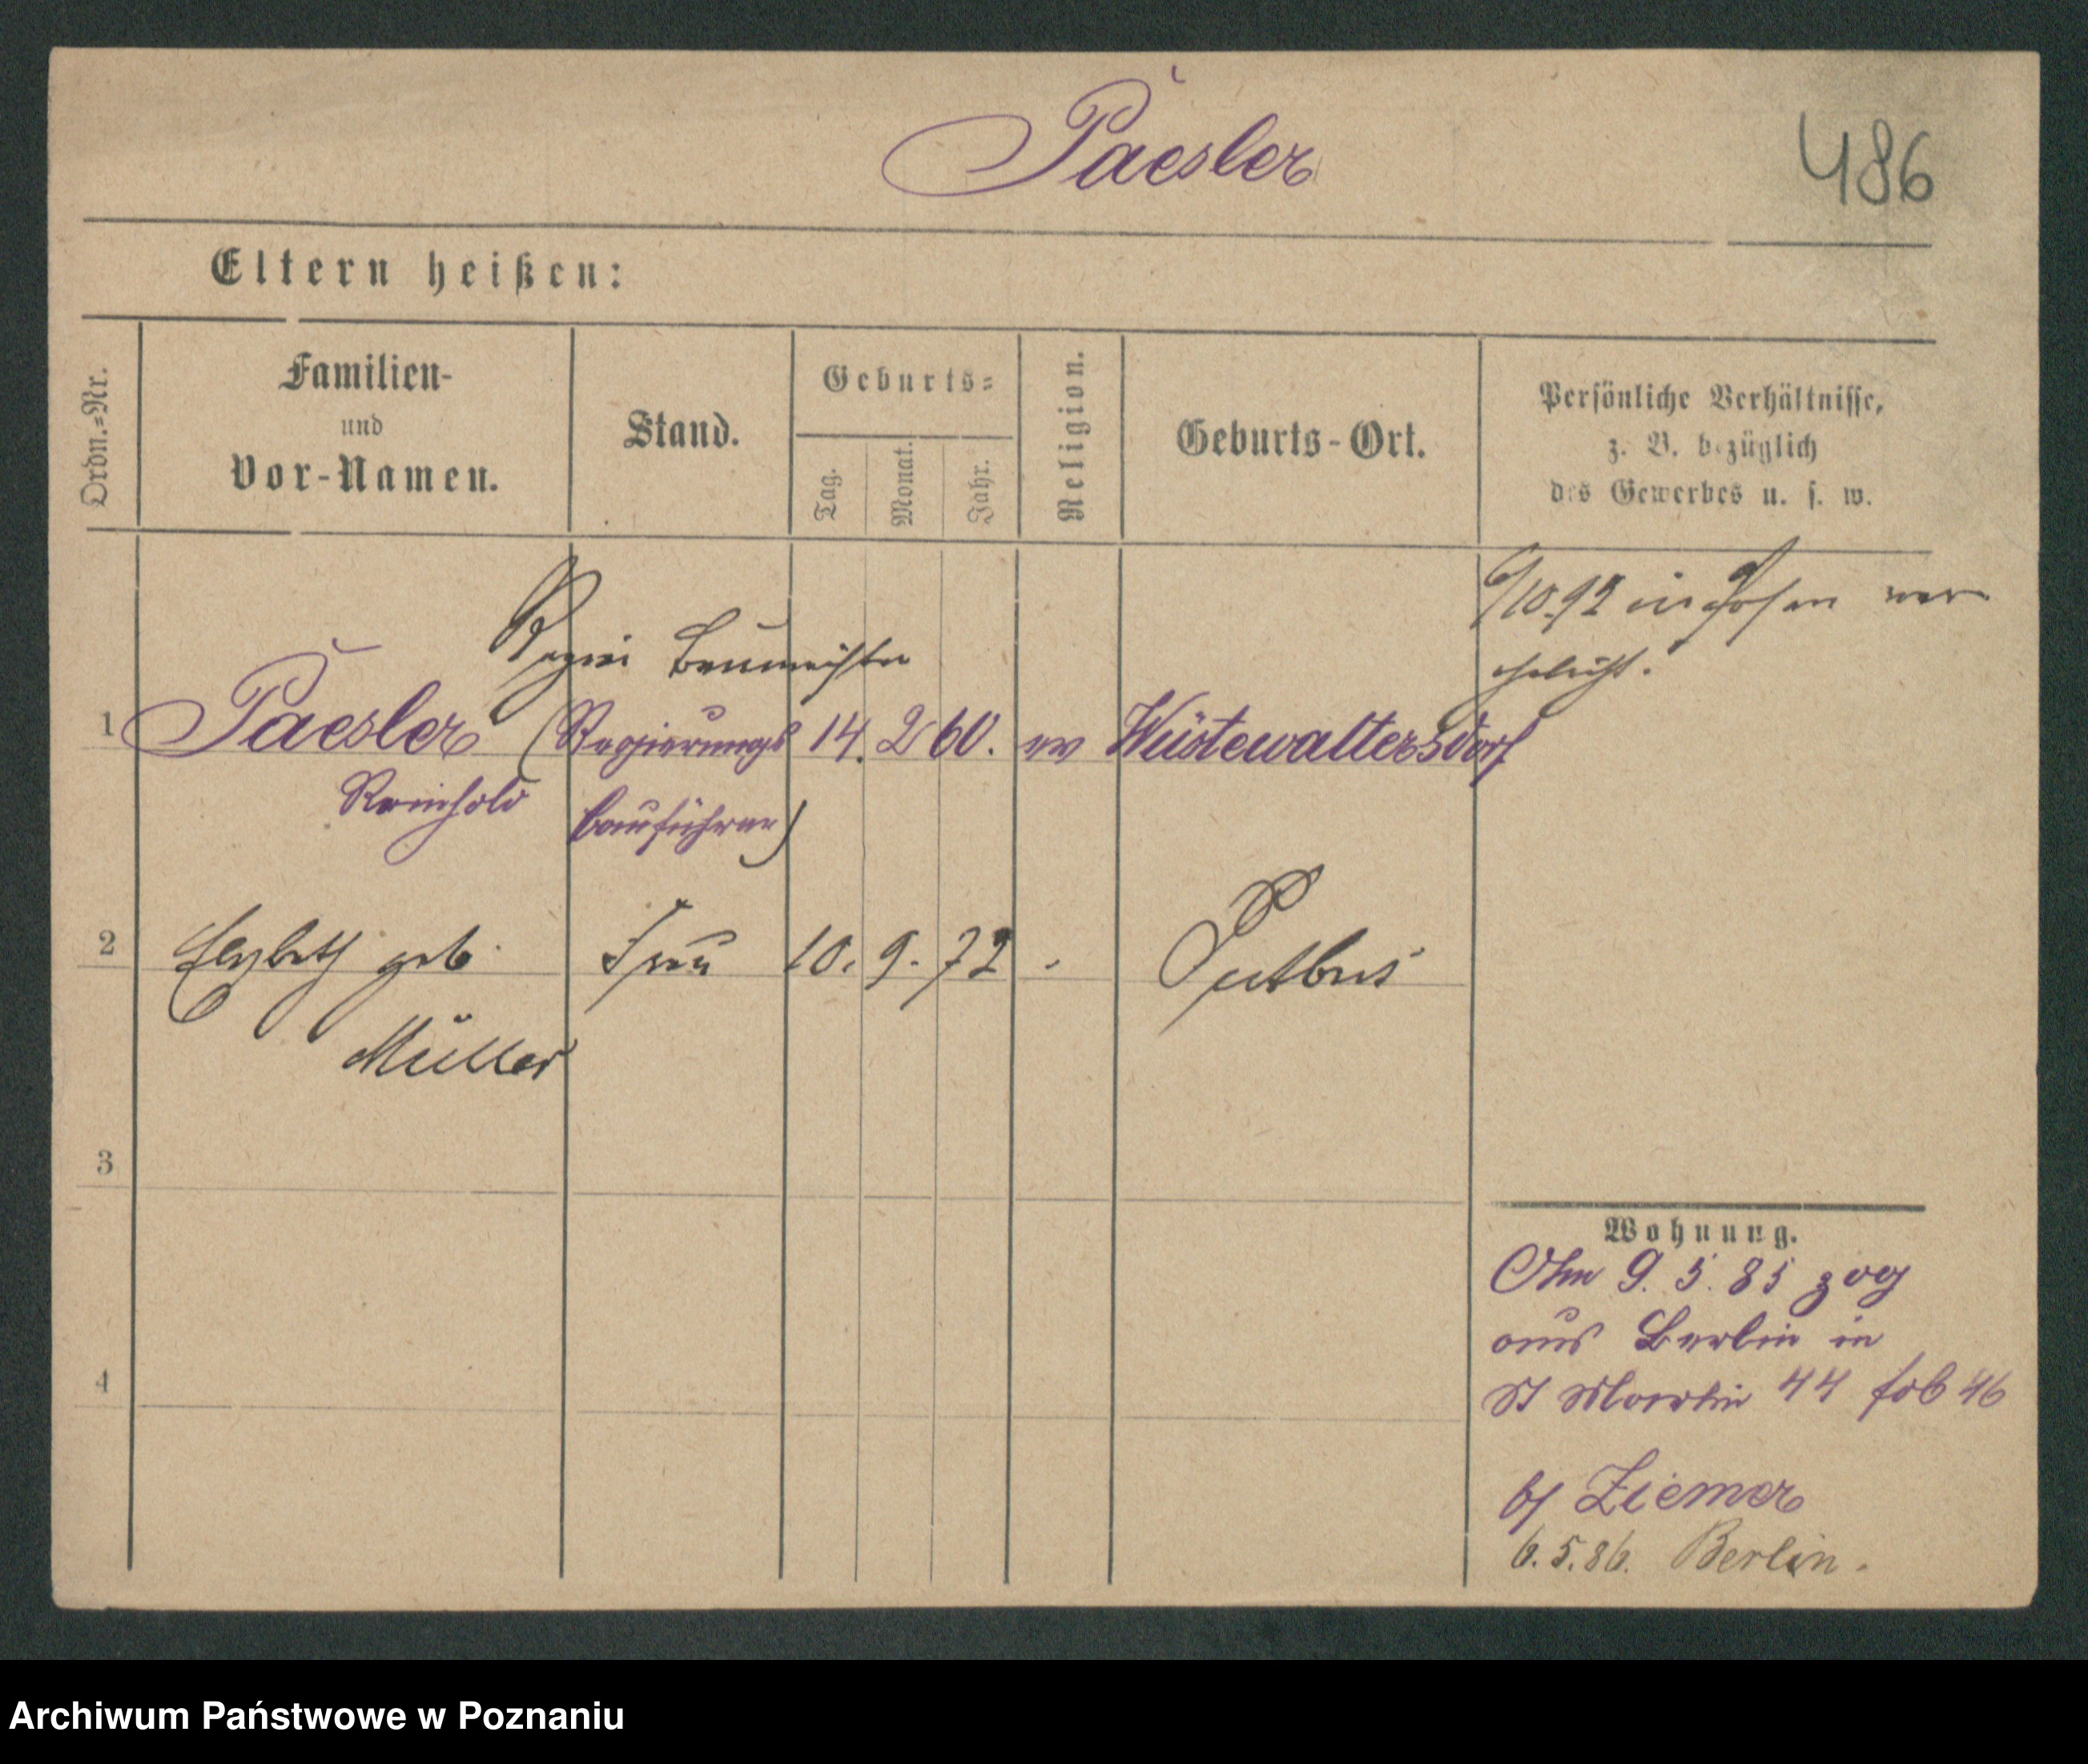 Paesler
486
Eltern heißen:
Ordn.=Nr.
Familien-
und
Vor-Namen.
Stand.
Geburts=
Tag.
Monat.
Jahr.
Religion.
Geburts-Ort.
Persönliche Verhältnisse,
z. B. bezüglich
des Gewerbes u. s. w.
6/10.92 in Posen ver
ehelicht.
Baumeister
1 Paesler (Regierungs 14. 2 60. ev Wüstewaltersdorf
Reinhold bauführer)
2 Elysbeth geb. Frau 10. 9. 72 Putbus
Müller
3
4
Wohnung.
Am 9. 5. 85 zog
aus Berlin in
St Martin 44 fol 46
b/ Ziemer
6. 5. 86. Berlin.
Archiwum Państwowe w Poznaniu